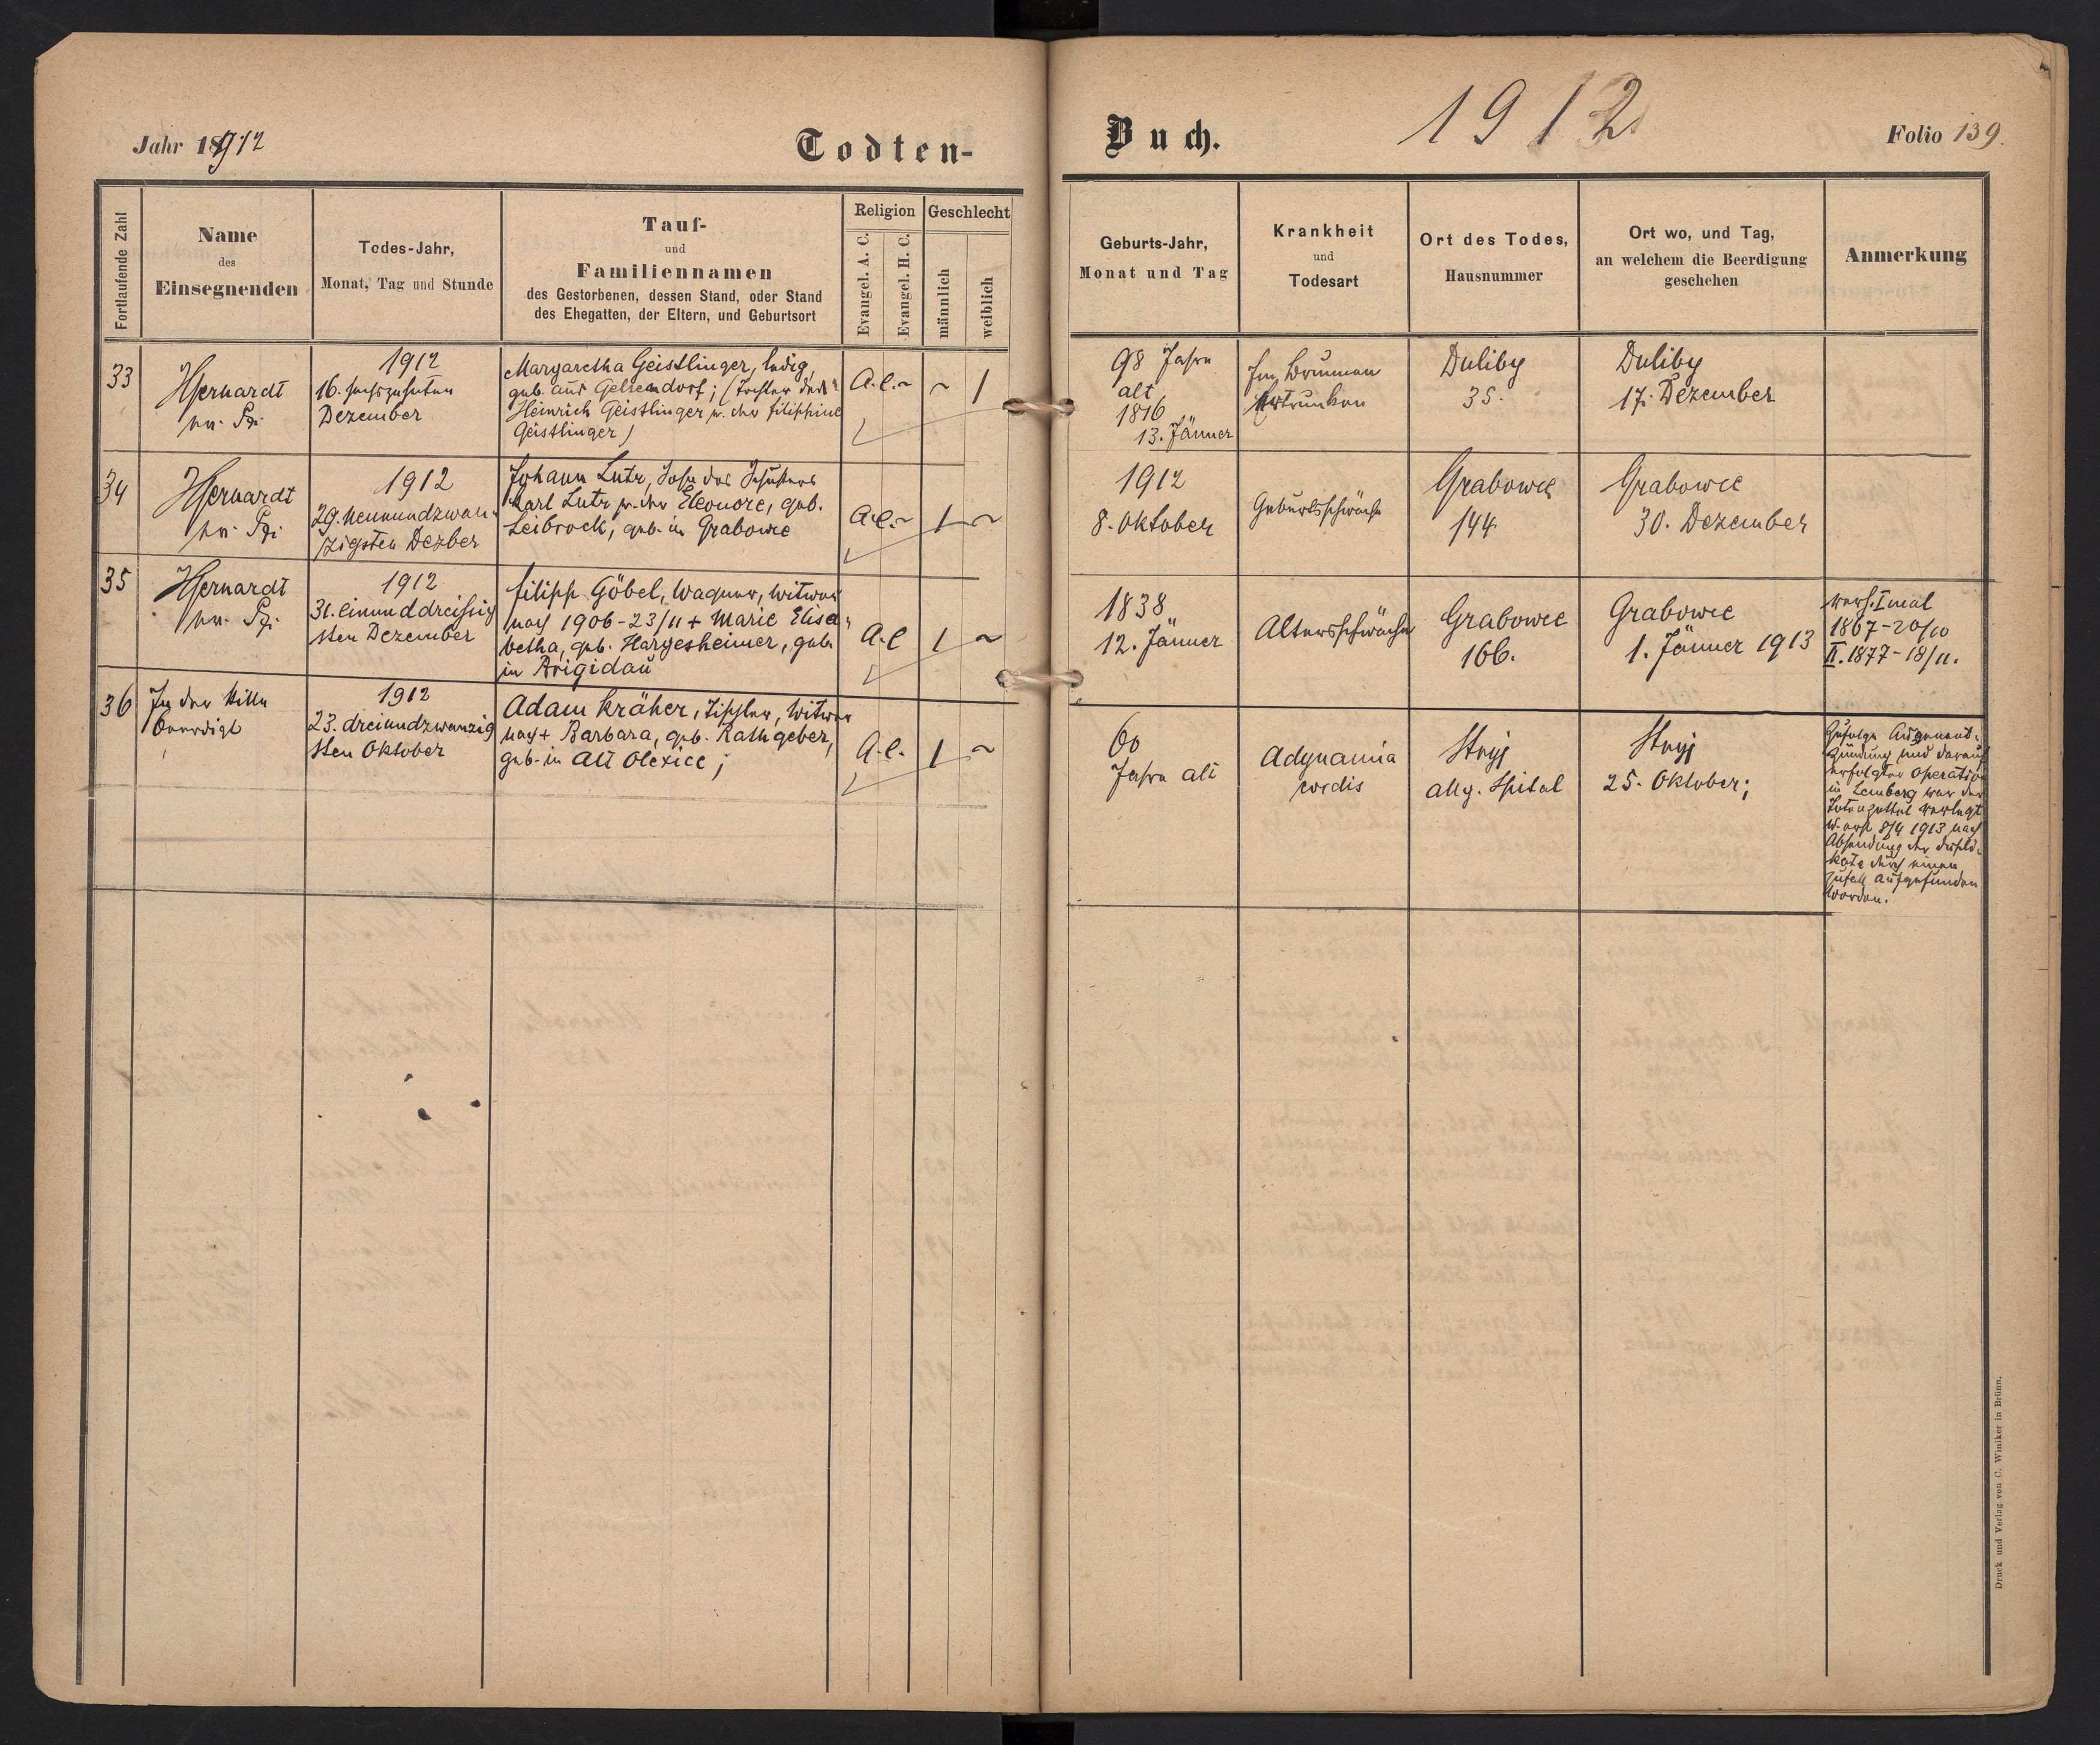 Jahr 1912
Todten-
Buch.
1912
Folio 139.
Fortlaufende Zahl
Name
des
Einsegnenden
Todes-Jahr,
Monat, Tag und Stunde
Tauf-
und
Familiennamen
des Gestorbenen, dessen Stand, oder Stand
des Ehegatten, der Eltern, und Geburtsort
Religion
Evangel. A. C.
Evangel. H. C.
Geschlecht
männlich
weiblich
Geburts-Jahr,
Monat und Tag
Krankheit
und
Todesart
Ort des Todes,
Hausnummer
Ort wo, und Tag,
an welchem die Beerdigung
geschehen
Anmerkung
33
1912
16. sechszehnten
Dezember
Margaretha Geistlinger, ledig,
geb. aus Gelsendorf; (Tochter des
Heinrich Geistlinger u. der Filippine
Geistlinger)
A.C. ~
~
1
98 Jahre
alt
1816
13. Jänner
Im Brunnen
ertrunken
Duliby
35.
Duliby
17. Dezember
34
1912
29. neunundzwan-
zigsten Dezber
Johann Lutz, Sohn des Schusters
Karl Lutz u. der Eleonore, geb.
Leibrock, geb. in Grabowce
A.C. ~
1
~
1912
8. Oktober
Geburtsschwäche
Grabowce
144.
Grabowce
30. Dezember
35
1912
31. einunddreissig
sten Dezember
Filipp Göbel, Wagner, Witwer
nach 1906-23/11 + Marie Elisa-
betha, geb. Hargesheimer, geb.
in Brigidau
A.C
1
~
1838
12. Jänner
Altersschwäche
Grabowce
166.
Grabowce
1. Jänner 1913
verh. I mal
1867-20/10
II. 1877-18/11.
36
In der Stille
beerdigt
1912
23. dreiundzwanzig
sten Oktober
Adam Kräher, Tischler, Witwer
nach + Barbara, geb. Rathgeber,
geb. in Alt Olexice;
A.C.
1
~
60
Jahre alt
Adynamia
cordis
Stryj
allg. Spital
Stryj
25. Oktober;
Zufolge Augenent-
zündung und darauf
erfolgter Operation
in Lemberg war der
Totenzettel verlegt
u. erst 8/4 1913 nach
Absendung der Dupli-
kate durch einen
Zufall aufgefunden
worden.
Druck und Verlag von C. Winiker in Brünn.